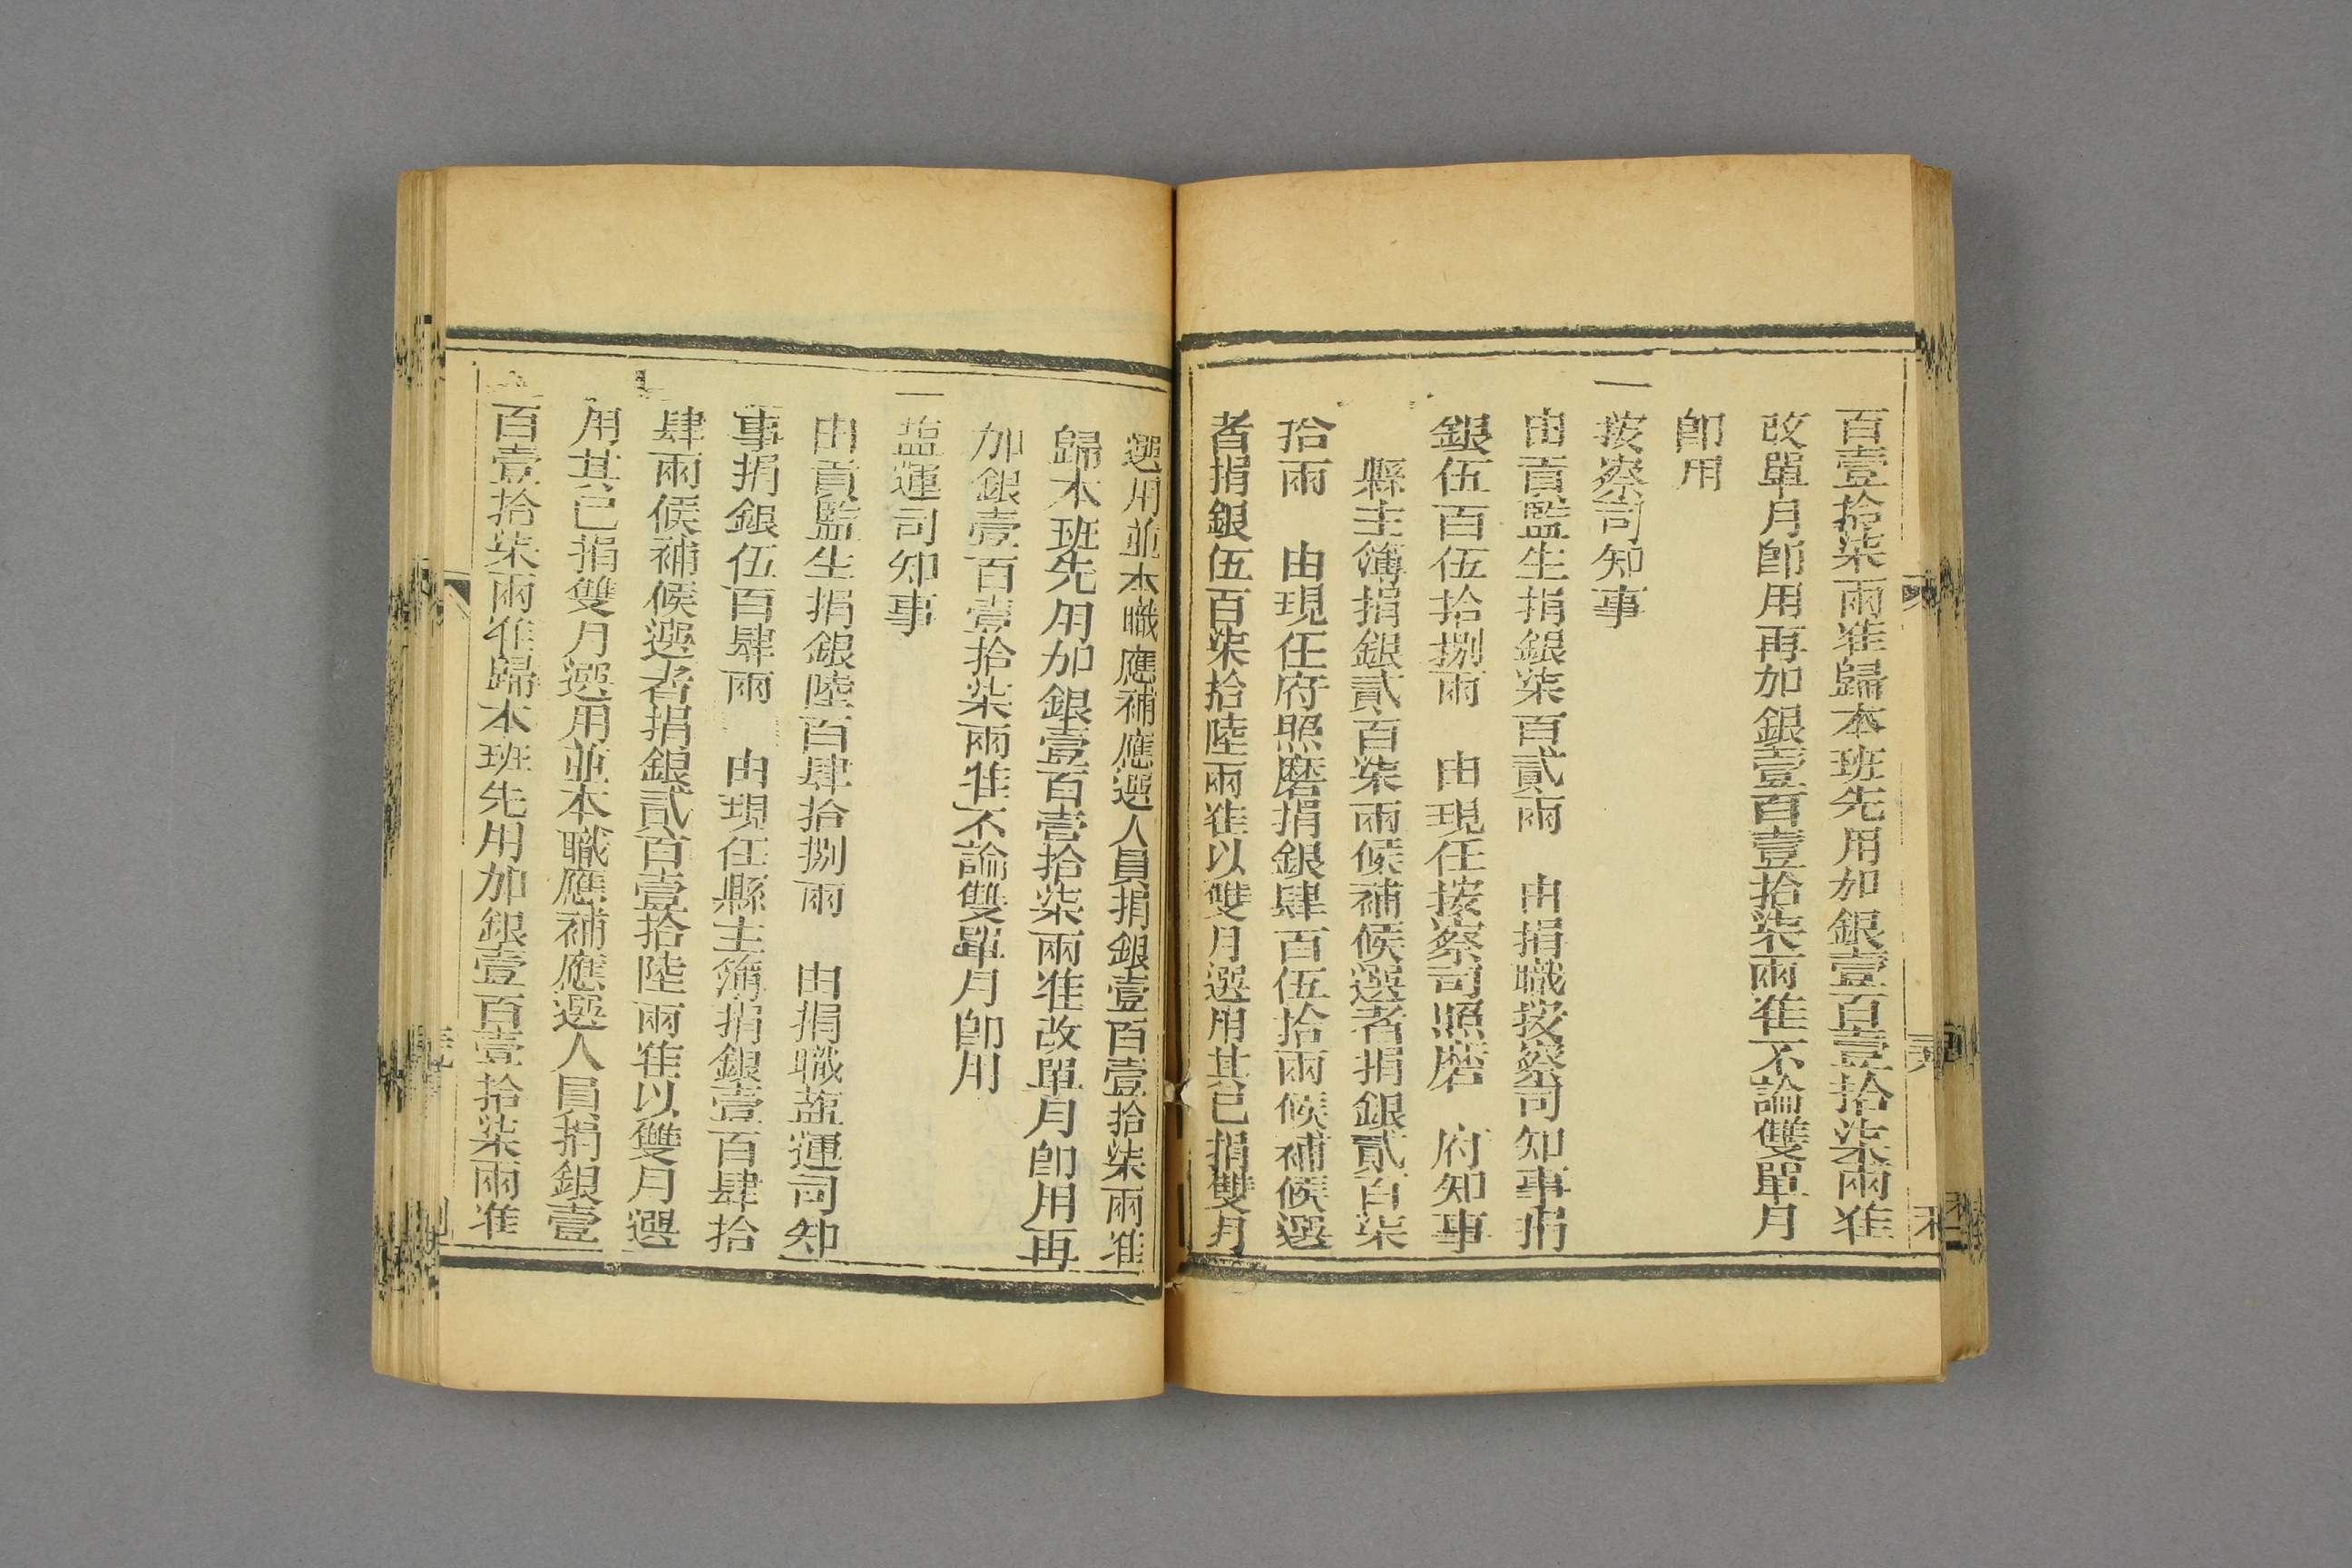 百壹拾柒兩准歸本班先用加銀壹百壹拾柒兩准
改單月卽用再加銀壹百壹拾柒兩准不論雙單月
卽用
一按察司知事
由貢監生捐銀柒百貳兩　由捐職按察司知事捐
銀伍百伍拾捌兩　由現任按察司照磨　府知事
縣主簿捐銀貳百柒兩候補候選者捐銀貳百柒
拾兩　由現任府照磨捐銀肆百伍拾兩候補候選
者捐銀伍百柒拾陸兩准以雙月選用其已捐雙月
選用並本職應補應選人員捐銀壹百壹拾柒兩准
歸本班先用加銀壹百壹拾柒兩准改單月卽用再
加銀壹百壹拾柒兩准不論雙單月卽用
一盐運司知事
由貢監生捐銀陸百肆拾捌兩　由捐職盐運司知
事捐銀伍百肆兩　由現任縣主簿捐銀壹百肆拾
肆兩候補候選者捐銀貳百壹拾陸兩准以雙月選
用其已捐雙月選用並本職應補應選人員捐銀壹
百壹拾柒兩准歸本班先用加銀壹百壹拾柒兩准